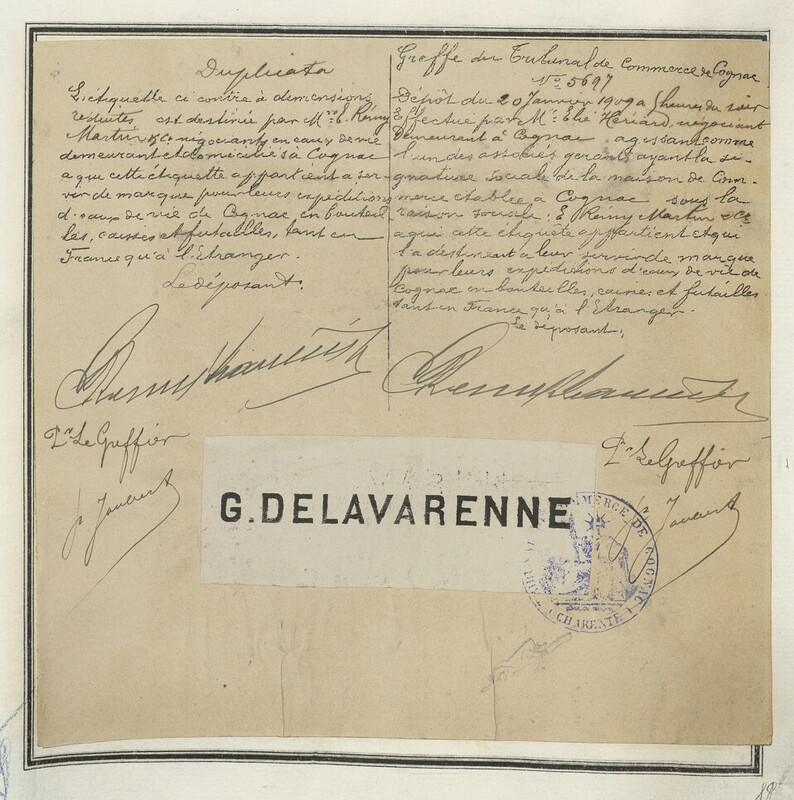 Duplicata
L'étiquette ci contre à dimensions
réduites est destinée par Mrs E. Rémy
Martin & Co négociants en eaux de vie
demeurant et domiciliés à Cognac
a que cette étiquette appartient à ser-
vir de marque pour leurs expéditions
d'eaux de vie de Cognac, en bouteil
les, caisses et futailles, tant en
France qu'à l'Etranger.
Le déposant.
Greffe du Tribunal de Commerce de Cognac
No 5697
Dépôt du 20 Janvier 1909 a 5 heures du soir
Effectué par Mr Elie Hériard négociant
Demeurant à Cognac agissant comme
l'un des associés gérants ayant la si-
gnature sociale de la maison de Com-
merce établie à Cognac sous la
raison sociale: E. Remy Martin & Co
a qui cette étiquête appartient et qui
l'a destinent a leur servir de marque
pour leurs expéditions d'eaux de vie de
Cognac en bouteilles, caisses et futailles
tant en France qu'à l'Etranger.
Le déposant,
E Remy Martin & Co
E Remy Martin & Co
Pr Le Greffier
Pr Le Greffier
G. DELAVARENNE
TRIBUNAL DE COMMERCE DE COGNAC
CHARENTE